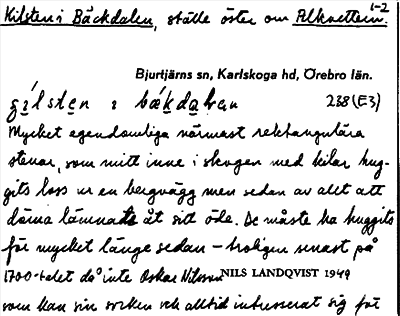 Kilsten i Bäckdalen, ställe öster om Alkvettern. 1-2
Bjurtjärns sn, Karlskoga hd, Örebro län.
i 238 (E3)
Mycket egendomliga närmast rektangulära
stenar, som mitt inne i skogen med kilar hug-
gits loss ur en bergvägg men sedan av allt att
döma lämnats åt sitt öde. De måste ha huggits
för mycket länge sedan – troligen senast på
1700-talet då inte Oskar Nilsson NILS LANDQVIST 1949
som kan sin socken och alltid intresserat sig för